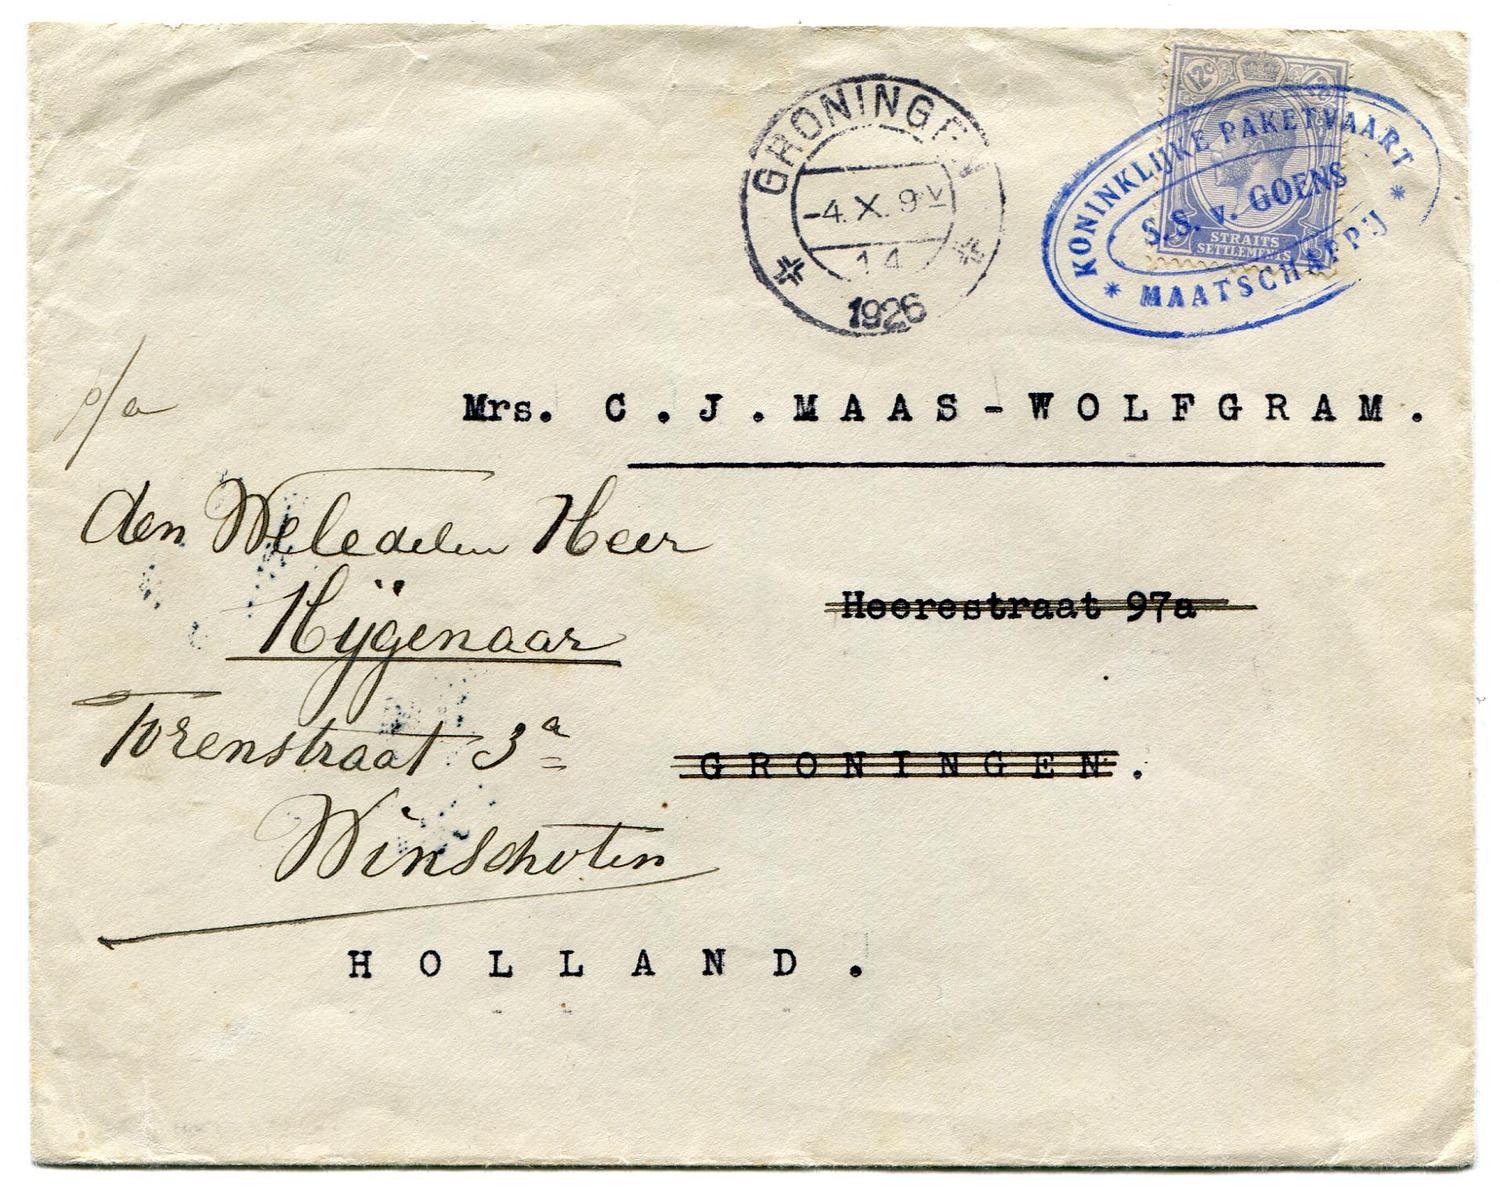 GRONINGEN
-4.X.9.V
14
1926
12c 12c
STRAITS
SETTLEMENTS
KONINKLIJKE PAKETVAART
S.S. v. GOENS
* MAATSCHAPPIJ *
Mrs. C.J.MAAS-WOLFGRAM.
p/a
den Weledelen Heer
Hijgenaar
Heerestraat 97a
Torenstraat 3a
GRONINGEN.
Winschoten
HOLLAND.